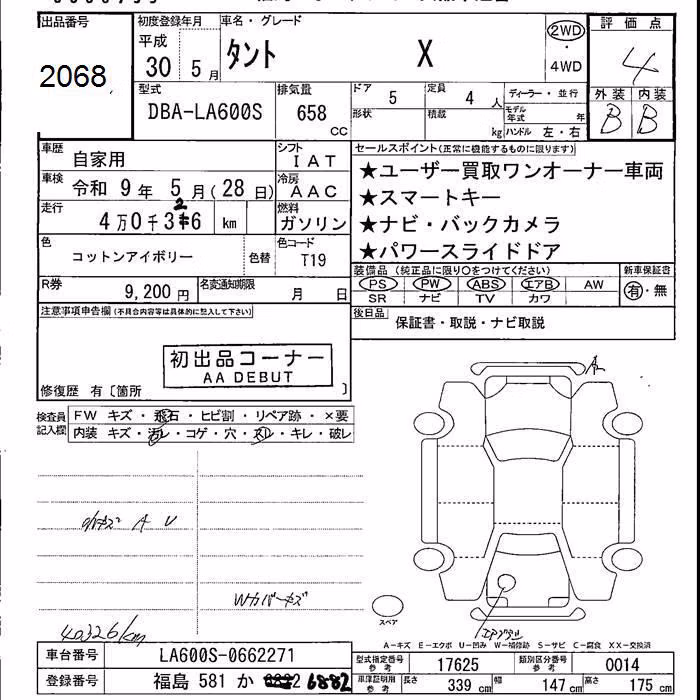 出品番号
2068
初度登録年月
平成
30 5月
車名・グレード
タント X
2WD
・
4WD
評価点
4
外装 内装
B B
型式
DBA-LA600S
排気量
658
CC
ドア
5
定員
4 人
形状
積載
kg
ディーラー・並行
モデル年式 年
ハンドル 左・右
車歴
自家用
シフト
IAT
車検
令和 9年 5月(28日)
冷房
AAC
走行
4万0千326 km
燃料
ガソリン
色
コットンアイボリー
色替
色コード
T19
R券
9,200円
名変通知期限
月 日
セールスポイント(正常に機能するものに限ります)
★ユーザー買取ワンオーナー車両
★スマートキー
★ナビ・バックカメラ
★パワースライドドア
装備品 (純正品に限り○をつけてください)
PS PW ABS エアB AW
SR ナビ TV カワ
新車保証書
有・無
後日品
保証書・取説・ナビ取説
注意事項申告欄(不具合内容等は具体的に記入して下さい)
初出品コーナー
AA DEBUT
修復歴 有〔箇所 〕
検査員
記入欄
FW キズ・飛石・ヒビ割・リペア跡・×要
内装 キズ・汚レ・コゲ・穴・スレ・キレ・破レ
小キズ A U
Wカバーキズ
40326km
A
スペア
エアロワレ
A-キズ E-エクボ U-凹み W-補修跡 S-サビ C-腐食 XX-交換済
車台番号
LA600S-0662271
登録番号
福島 581 か 6882
型式指定番号
参考
17625
類別区分番号
参考
0014
車庫証明用
参考
長さ 339 cm 幅 147 cm 高さ 175 cm